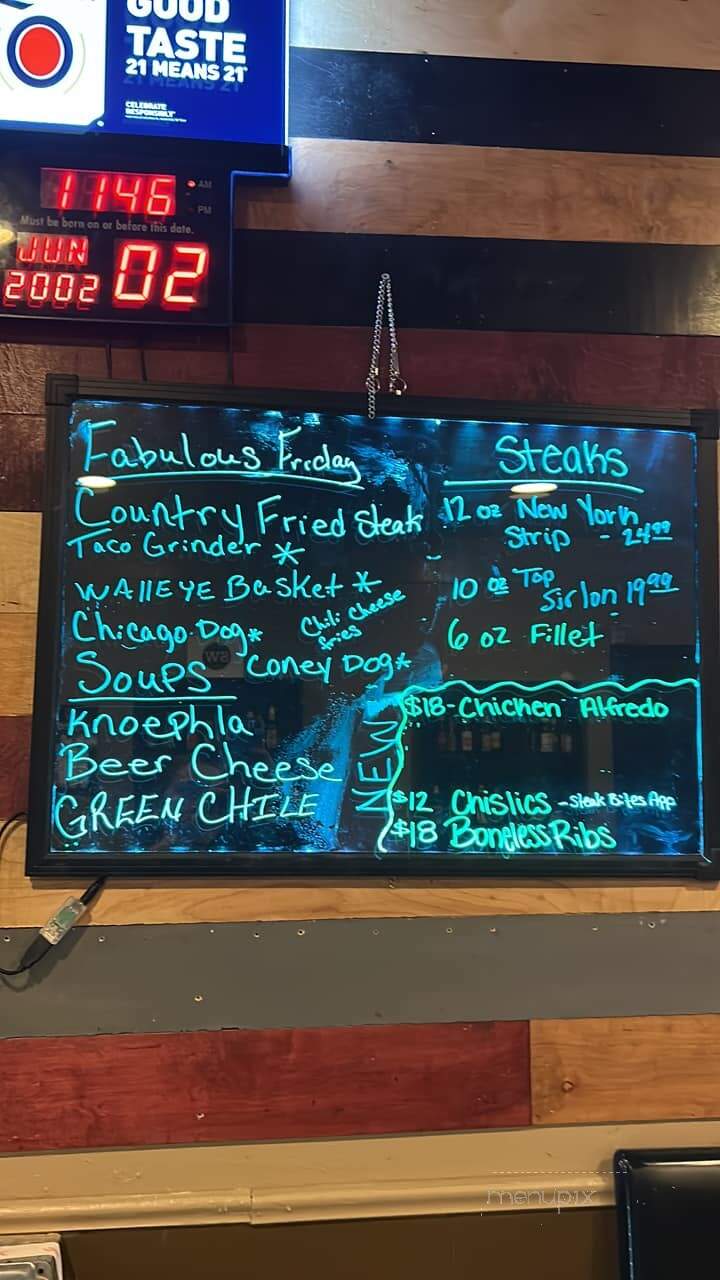 GOOD
TASTE
21 MEANS 21
CELEBRATE
RESPONSIBLY
1146
AM
PM
Must be born on or before this date.
JUN
2002
02
Fabulous Friday
Country Fried Steak
Taco Grinder *
WAllEYE Basket *
Chicago Dog*
Chili Cheese
fries
Coney Dog*
Soups
Knoephla
Beer Cheese
GREEN CHILE
Steaks
12 oz New York
Strip - 24.99
10 oz Top
Sirlon 19.99
6 oz Fillet
NEW
$18-Chicken Alfredo
$12 Chislics -Steak Bites App
$18 Boneless Ribs
menupix